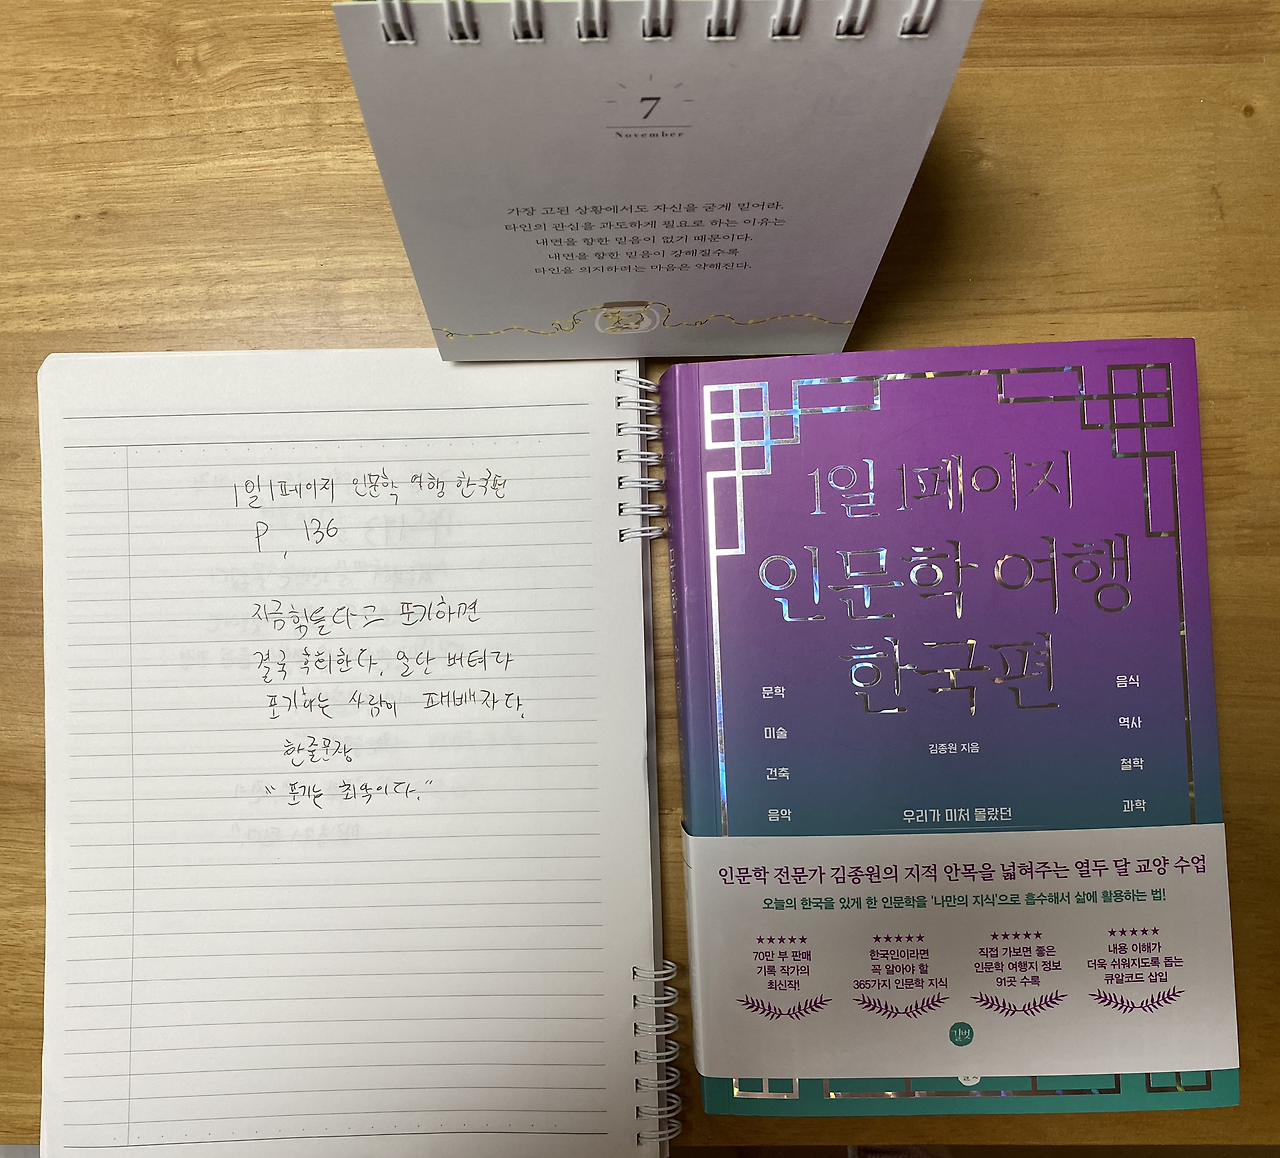 7
November
가장 고된 상황에서도 자신을 굳게 믿어라.
타인의 관심을 과도하게 필요로 하는 이유는
내면을 향한 믿음이 없기 때문이다.
내면을 향한 믿음이 강해질수록
타인을 의지하려는 마음은 약해진다.
1일 1페이지 인문학 여행 한국편
P. 136
지금 힘들다고 포기하면
결국 후회한다. 일단 버텨라
포기하는 사람이 패배자다.
한줄문장
"포기는 최악이다."
1일 1페이지
인문학 여행
한국편
문학
미술
건축
음악
음식
역사
철학
과학
김종원 지음
우리가 미처 몰랐던
인문학 전문가 김종원의 지적 안목을 넓혀주는 열두 달 교양 수업
오늘의 한국을 있게 한 인문학을 '나만의 지식'으로 흡수해서 삶에 활용하는 법!
★★★★★
70만 부 판매
기록 작가의
최신작!
★★★★★
한국인이라면
꼭 알아야 할
365가지 인문학 지식
★★★★★
직접 가보면 좋은
인문학 여행지 정보
91곳 수록
★★★★★
내용 이해가
더욱 쉬워지도록 돕는
큐알코드 삽입
길벗